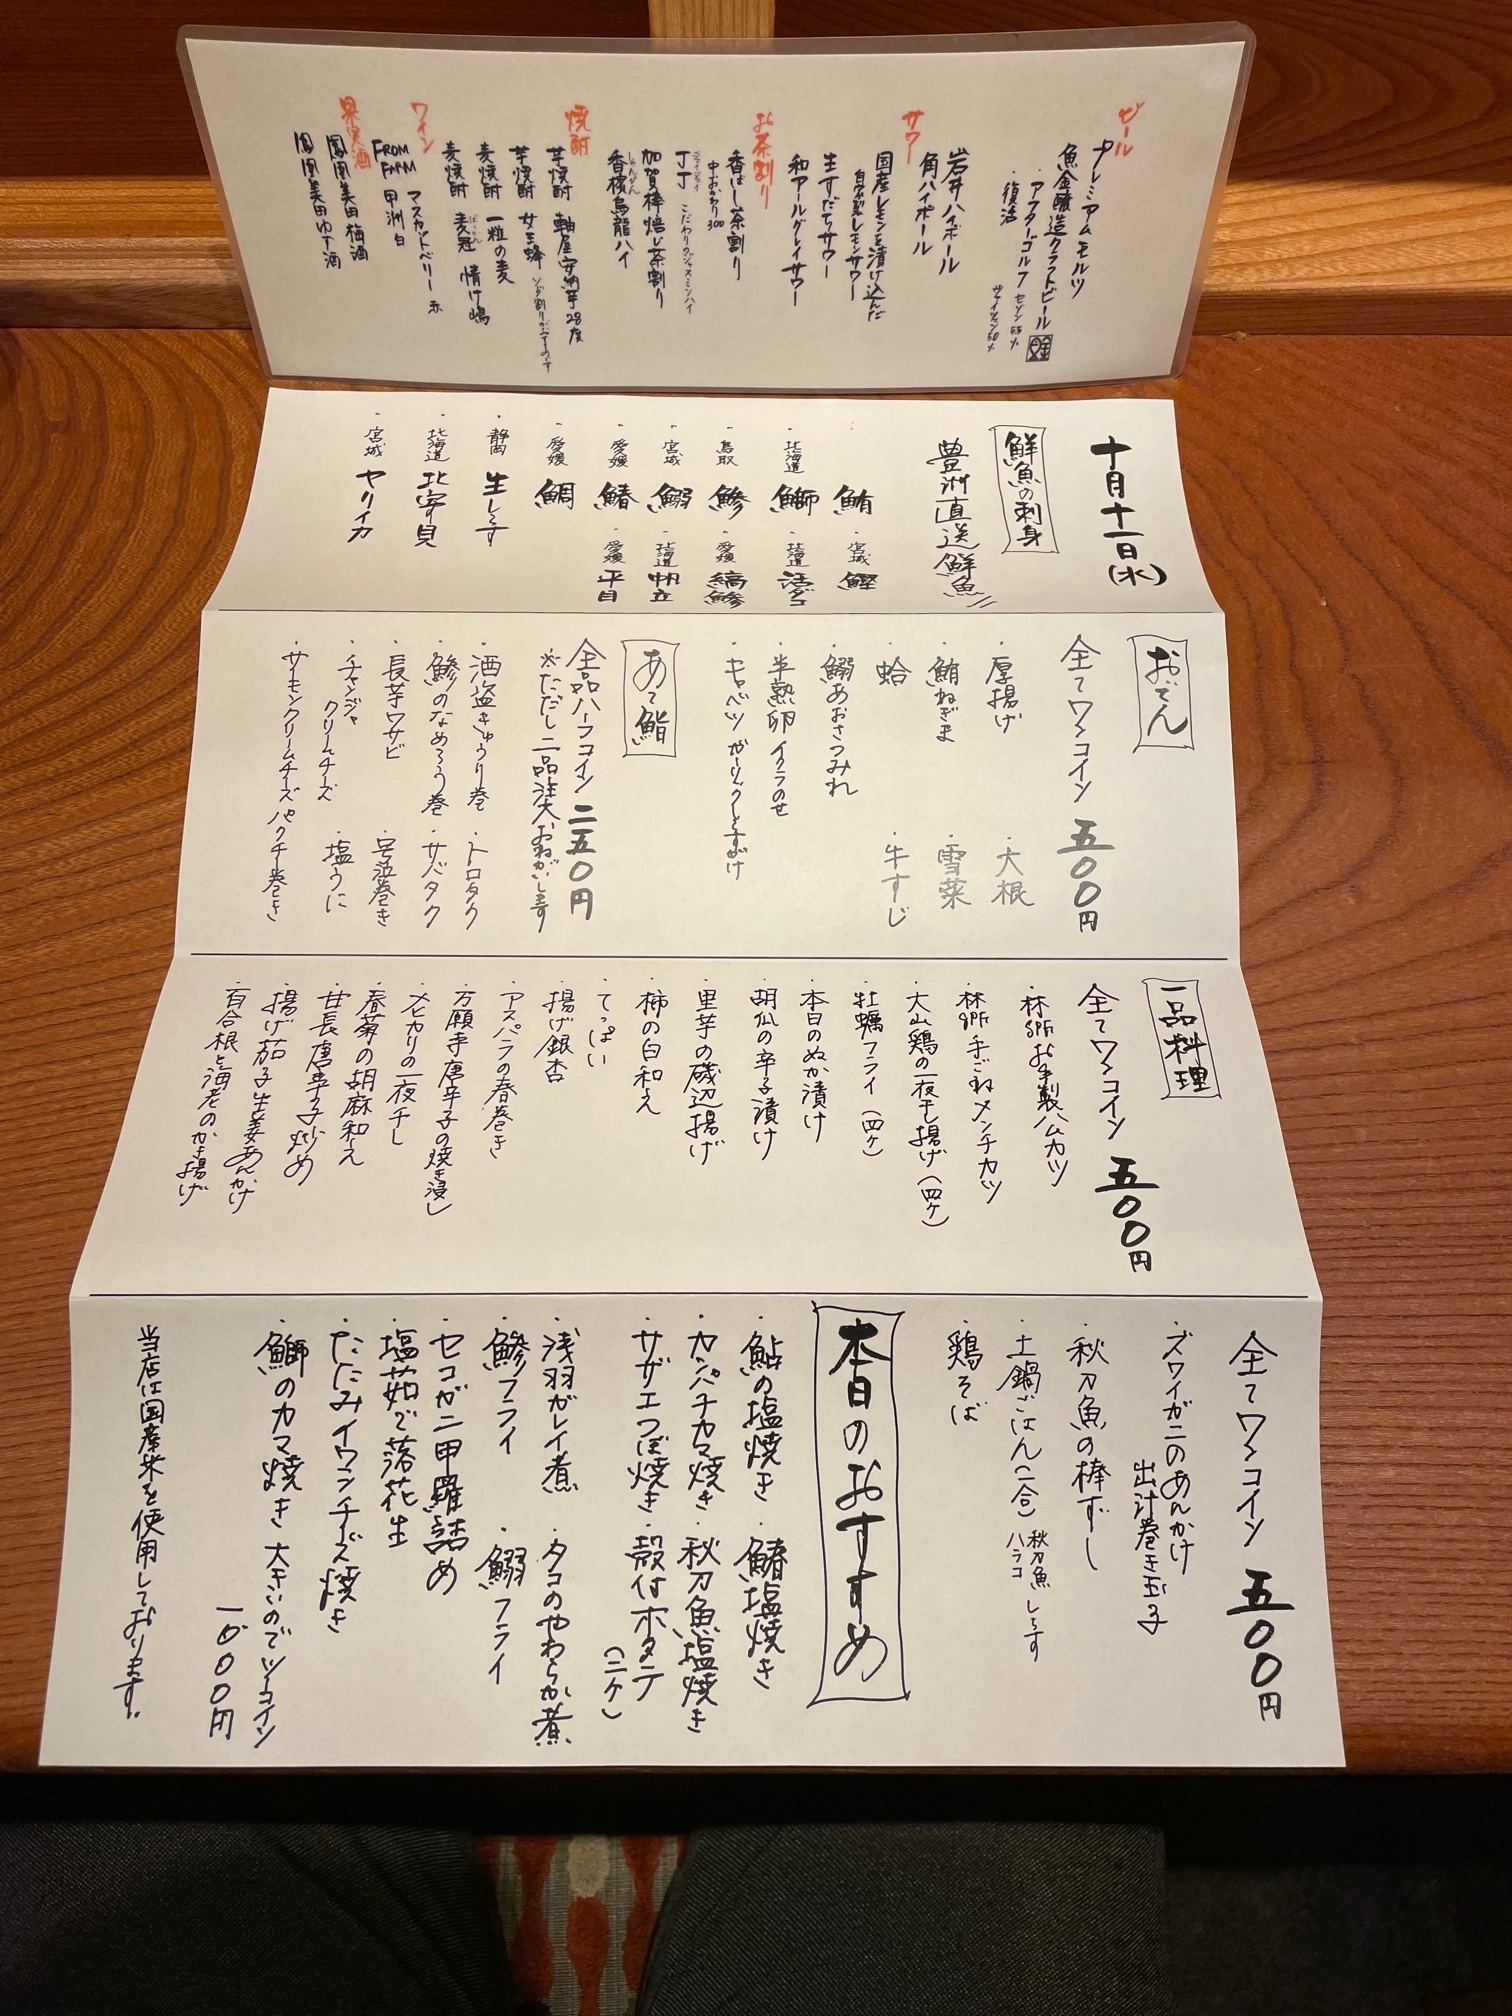 ビール
プレミアムモルツ
魚金醸造クラフトビール
・アフターゴルフ セゾン 5.5%
・復活 ヴァイツェン 5.0%
サワー
岩井ハイボール
角ハイボール
国産レモンを漬け込んだ
自家製レモンサワー
生すだちサワー
和アールグレイサワー
お茶割り
香ばし茶割り
中おかわり300
丁丁 こだわりのジャスミンハイ
加賀棒焙じ茶割り
香檳烏龍ハイ
焼酎
芋焼酎 軸屋 安納芋 28度
芋焼酎 女王蜂 ソーダ割りがおすすめです
麦焼酎 一粒の麦
麦焼酎 麦冠 情け嶋
ワイン
FROM FARM マスカットベリー 赤
甲洲 白
果実酒
鳳凰美田 梅酒
鳳凰美田 ゆず酒
十月十一日(水)
鮮魚の刺身
豊洲直送鮮魚
・鮪 宮城 鰹
・北海道 鰤 北海道 活ダコ
・鳥取 鯵 愛媛 縞鯵
・宮城 鰯 北海道 帆立
・愛媛 鰆 愛媛 平目
・愛媛 鯛
・静岡 生しらす
・北海道 北寄貝
・宮城 ヤリイカ
おでん
全てワンコイン 五〇〇円
・厚揚げ ・大根
・鮪ねぎま ・雪菜
・蛤 ・牛すじ
・鰯あおさつみれ
・半熟卵 イクラのせ
・キャベツ ガーリックしらすがけ
あて鮨
全品ハーフコイン 二五〇円
※ただし二品注文おねがいします
・酒盗きゅうり巻 ・トロタク
・鯵のなめろう巻 ・サバタク
・長芋ワサビ ・号泣巻き
・チャンジャクリームチーズ ・塩うに
・サーモンクリームチーズパクチー巻き
一品料理
全てワンコイン 五〇〇円
・林SPFお手製ハムカツ
・林SPF手ごねメンチカツ
・大山鶏の一夜干し揚げ(四ケ)
・牡蠣フライ(四ケ)
・本日のぬか漬け
・胡瓜の辛子漬け
・里芋の磯辺揚げ
・柿の白和え
・てっぱい
・揚げ銀杏
・アスパラの春巻き
・万願寺唐辛子の焼き浸し
・メヒカリの一夜干し
・春菊の胡麻和え
・甘長唐辛子炒め
・揚げ茄子生姜あんかけ
・百合根と海老のかき揚げ
全てワンコイン 五〇〇円
・ズワイガニのあんかけ
出汁巻き玉子
・秋刀魚の棒ずし
・土鍋ごはん(一合) 秋刀魚 しらす
ハラコ
・鶏そば
本日のおすすめ
・鮎の塩焼き ・鰆塩焼き
・カンパチカマ焼き ・秋刀魚塩焼き
・サザエつぼ焼き ・殻付ホタテ
(二ケ)
・浅羽ガレイ煮 ・タコのやわらか煮
・鯵フライ ・鰯フライ
・セコガニ甲羅詰め
・塩茹で落花生
・たたみイワシチーズ焼き
・鰤のカマ焼き 大きいのでツーコイン
一〇〇〇円
当店は国産米を使用しております。